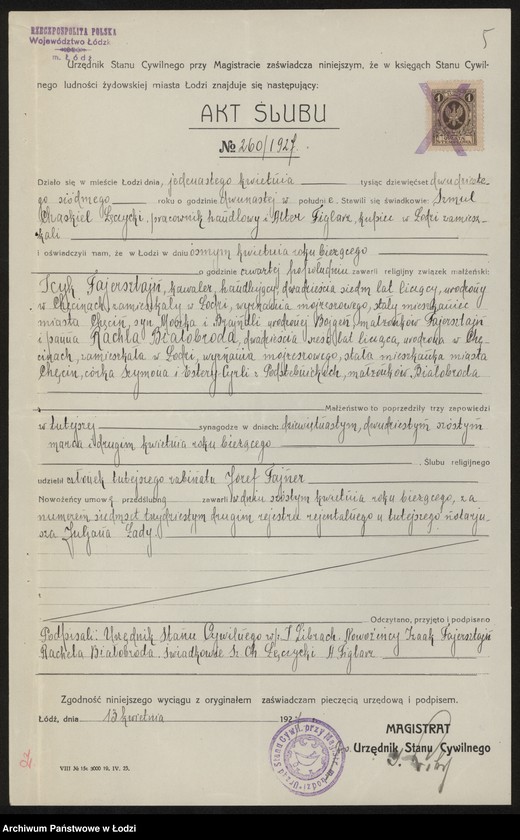 RZECZPOSPOLITA POLSKA
Województwo Łódzkie
m. Łódź
5
Urzędnik Stanu Cywilnego przy Magistracie zaświadcza niniejszym, że w księgach Stanu Cywil-
nego ludności żydowskiej miasta Łodzi znajduje się następujący:
AKT ŚLUBU
№ 260/1927.
Działo się w mieście Łodzi dnia, jedenastego kwietnia tysiąc dziewięćset dwudzieste-
go siódmego roku o godzinie dwunastej w południe. Stawili się świadkowie: Szmul
Chaskiel Łęczycki, pracownik handlowy i Alter Figlarz, kupiec w Łodzi zamiesz-
kali
i oświadczyli nam, że w Łodzi w dniu ósmym kwietnia roku bieżącego
o godzinie czwartej po południu zawarli religijny związek małżeński:
Icyk Fajersztajn, kawaler, handlujący, dwadzieścia siedm lat liczący, urodzony
w Chęcinach, zamieszkały w Łodzi, wyznania mojżeszowego, stały mieszkaniec
miasta Chęcin, syn Moszka i Brajndli urodzonej małżonków Fajersztajn
i panna Rachla Białobroda, dwadzieścia sześć lat licząca, urodzona w Chę-
cinach, zamieszkała w Łodzi, wyznania mojżeszowego, stała mieszkanka miasta
Chęcin, córka Szymona i Estery-Cyrli z małżonków Białobroda
Małżeństwo to poprzedziły trzy zapowiedzi
w tutejszej synagodze w dniach: dziewiętnastym, dwudziestym szóstym
marca i drugim kwietnia roku bieżącego
Ślubu religijnego
udzielił członek tutejszego rabinatu Josef Fajner
Nowożeńcy umowę przedślubną zawarli w dniu szóstym kwietnia roku bieżącego, za
numerem siedmset trzydziestym drugim rejestru rejentalnego u tutejszego notarju-
sza Juljana Łady
Odczytano, przyjęto i podpisano
Podpisali: Urzędnik Stanu Cywilnego w/z Nowożeńcy Izaak Fajersztajn
Rachela Białobroda. Świadkowie Sz. Ch. Łęczycki A. Figlarz
Zgodność niniejszego wyciągu z oryginałem zaświadczam pieczęcią urzędową i podpisem.
Łódź, dnia 13 kwietnia 1927
MAGISTRAT
Urzędnik Stanu Cywilnego
VIII № 15c 3000 19. IV. 23.
Archiwum Państwowe w Łodzi